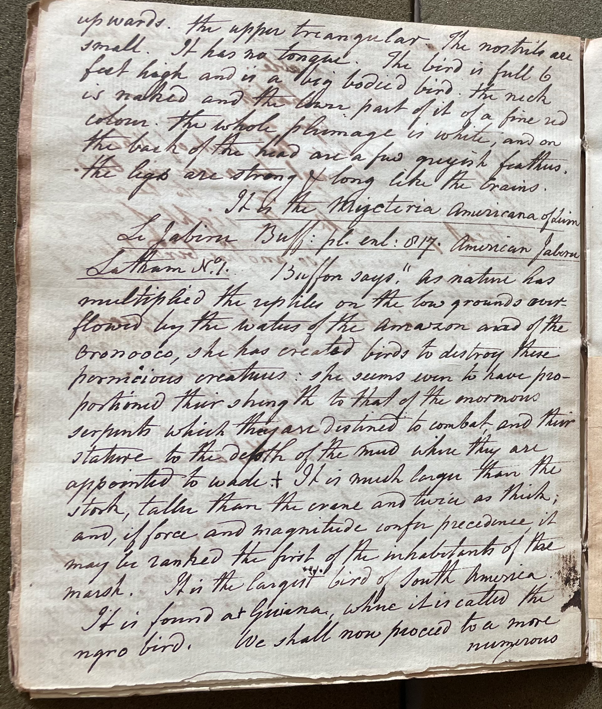 upwards. the upper triangular. The nostrils are
small. It has no tongue. The bird is full 6
feet high and is a big bodied bird. the neck
is naked and the lower part of it of a fine red
colour. the whole plumage is white, and on
the back of the head are a few greyish feathers.
the legs are strong & long like the Crains.
It is the Mycteria Americana of Linn
Le Jabiru Buff: pl. enl: 817. American Jabiru
Latham N.1. Buffon says, "As nature has
multiplied the reptiles on the low grounds over
flowed by the waters of the Amazon and of the
Oronooco, she has created birds to destroy these
pernicious creatures: she seems even to have pro-
portioned their strength to that of the enormous
serpents which they are destined to combat, and their
stature to the depth of the mud where they are
appointed to wade. + It is much larger than the
stork, taller than the crane and twice as thick;
and, if force and magnitude confer precedence it
may be ranked the first of the inhabitants of the
marsh. It is the largest bird of South America.
It is found at Guiana, where it is called the
negro bird. We shall now proceed to a more
numerous